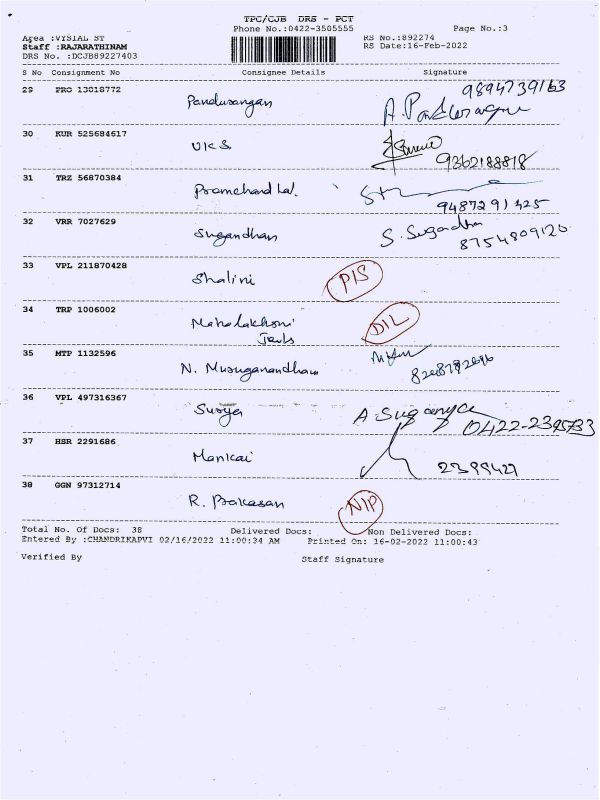 TPC/CJB DRS - PCT
Phone No.:0422-3505555 Page No.:3
Area :VYSIAL ST RS No.:892274
Staff :RAJARATHINAM RS Date:16-Feb-2022
DRS No. :DCJB89227403
S No Consignment No Consignee Details Signature
29 PRG 13018772 Pandurangan 9894739163
30 KUR 525684617 UKS 9362188818
31 TRZ 56870384 Pramchand Lal. 9487291425
32 VRR 7027629 Sugandhan S. Sugandhan 8754809120
33 VPL 211870428 Shalini PIS
34 TRP 1006002 Mahalakhmi DIL
35 MTP 1132596 N. Muruganandham
36 VPL 497316367 Surya A. Suganya 0422-2395733
37 HSR 2291686 Mankai
38 GGN 97312714 R. Prakasan NIP
Total No. Of Docs: 38 Delivered Docs: Non Delivered Docs:
Entered By :CHANDRIKAPVI 02/16/2022 11:00:34 AM Printed On: 16-02-2022 11:00:43
Verified By Staff Signature